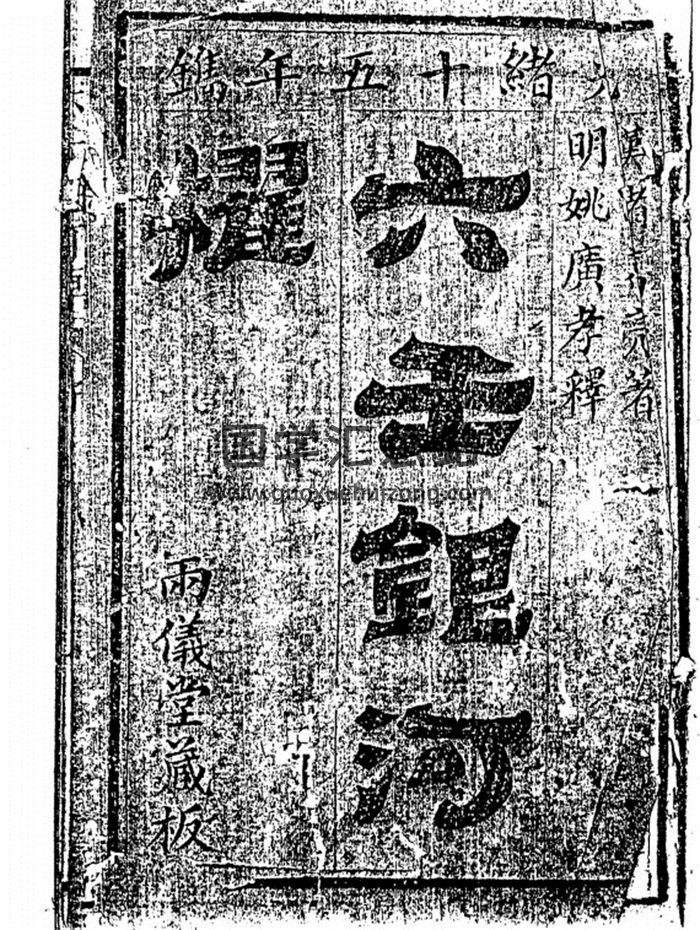 光緒十五年鐫
漢諸 亮著
明姚廣孝釋
六壬銀河
櫂
兩儀堂藏板
国学汇总站
www.guoxuehuizong.com